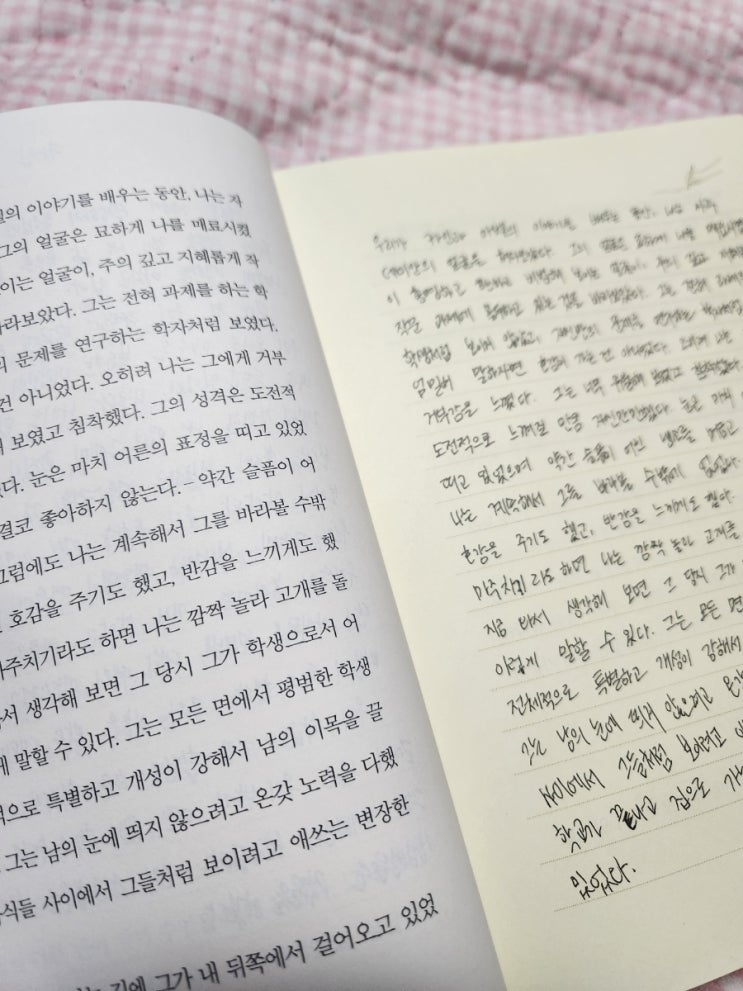 의 이야기를 배우는 동안, 나는 자
그의 얼굴은 묘하게 나를 매료시켰
이는 얼굴이, 주의 깊고 지혜롭게 작
라보았다. 그는 전혀 과제를 하는 학
의 문제를 연구하는 학자처럼 보였다.
건 아니었다. 오히려 나는 그에게 거부
보였고 침착했다. 그의 성격은 도전적
다. 눈은 마치 어른의 표정을 띠고 있었
결코 좋아하지 않는다.–약간 슬픔이 어
그럼에도 나는 계속해서 그를 바라볼 수밖
호감을 주기도 했고, 반감을 느끼게도 했
마주치기라도 하면 나는 깜짝 놀라 고개를 돌
서 생각해 보면 그 당시 그가 학생으로서 어
게 말할 수 있다. 그는 모든 면에서 평범한 학생
적으로 특별하고 개성이 강해서 남의 이목을 끌
그는 남의 눈에 띄지 않으려고 온갖 노력을 다했
식들 사이에서 그들처럼 보이려고 애쓰는 변장한
길에 그가 내 뒤쪽에서 걸어오고 있었
우리가 이야기를 배우는 동안, 나는 자주
데미안의 얼굴을 그의 얼굴은 묘하게 나를
이 얼굴이, 주의 깊고
작문 과제에 있는 것을 바라보았다. 그는 전혀
학생처럼 보이지 않았고, 자신만의 문제를 연구하는
엄밀히 말하자면 호감이 가는 건 아니었다. 나는
거부감을 느꼈다. 그는 너무 보였고
도전적으로 느껴질 만큼 눈은 마치
띠고 있었으며 약간 슬픔이 어린
나는 계속해서 그를 바라볼 수밖에 없었다.
호감을 주기도 했고, 반감을 느끼게도 했다.
마주치기라도 하면 나는 깜짝 놀라 고개를
지금 와서 생각해 보면 그 당시 그가
이렇게 말할 수 있다. 그는 모든 면
전체적으로 특별하고 개성이 강해서
그는 남의 눈에 띄지 않으려고 온갖
사이에서 그들처럼 보이려고 애
학교가 끝나고 집으로 가
있었다.